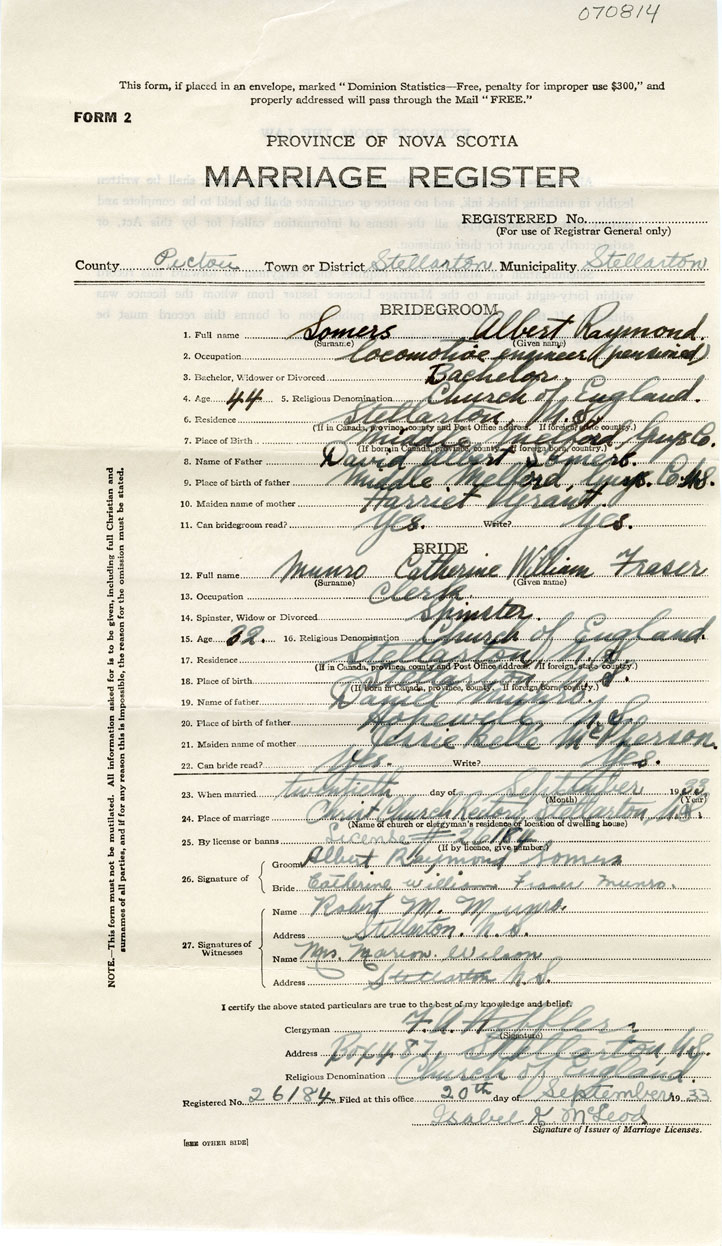 070814
This form, if placed in an envelope, marked "Dominion Statistics—Free, penalty for improper use $300," and
properly addressed will pass through the Mail "FREE."
FORM 2
PROVINCE OF NOVA SCOTIA
MARRIAGE REGISTER
REGISTERED No.
(For use of Registrar General only)
County Pictou Town or District Stellarton Municipality Stellarton
BRIDEGROOM
1. Full name Somers Albert Raymond.
(Surname) (Given name)
2. Occupation locomotive engineer (pensioned)
3. Bachelor, Widower or Divorced Bachelor
4. Age 44 5. Religious Denomination Church of England.
6. Residence Stellarton, N.S.
(If in Canada, province, county and Post Office address. If foreign, state country.)
7. Place of Birth Middle Melford, Guys Co.
(If born in Canada, province, county. If foreign born, country.)
8. Name of Father David Albert Somers.
9. Place of birth of father Middle Melford, Guys. Co. N.S.
10. Maiden name of mother Harriet Grant
11. Can bridegroom read? Yes. Write? Yes.
BRIDE
12. Full name Munro Catherine William Fraser
(Surname) (Given name)
13. Occupation Clerk
14. Spinster, Widow or Divorced Spinster.
15. Age 32. 16. Religious Denomination Church of England.
17. Residence Stellarton, N.S.
(If in Canada, province, county and Post Office address. If foreign, state country.)
18. Place of birth Stellarton N.S.
(If born in Canada, province, county. If foreign born, country.)
19. Name of father Daniel Munro.
20. Place of birth of father Hopewell N.S.
21. Maiden name of mother Jessie Belle McPherson.
22. Can bride read? Yes. Write? Yes.
23. When married twentieth day of September 1933
(Month) (Year)
24. Place of marriage Christ Church Rectory Stellarton, N.S.
(Name of church or clergyman's residence or location of dwelling house)
25. By license or banns License # 26184
(If by licence, give number)
26. Signature of
Groom Albert Raymond Somers
Bride Catherine William Fraser Munro.
27. Signatures of Witnesses
Name Robert M. Munro.
Address Stellarton. N.S.
Name Mrs. Marion. Wilson
Address Stellarton N.S.
I certify the above stated particulars are true to the best of my knowledge and belief.
Clergyman
(Signature)
Address Box 487, Stellarton, N.S.
Religious Denomination Church of England.
Registered No. 26184 Filed at this office 20th day of September 1933
Isabel K. McLeod
Signature of Issuer of Marriage Licenses.
[SEE OTHER SIDE]
NOTE.—This form must not be mutilated. All information asked for is to be given, including full Christian and
surnames of all parties, and if for any reason this is impossible, the reason for the omission must be stated.